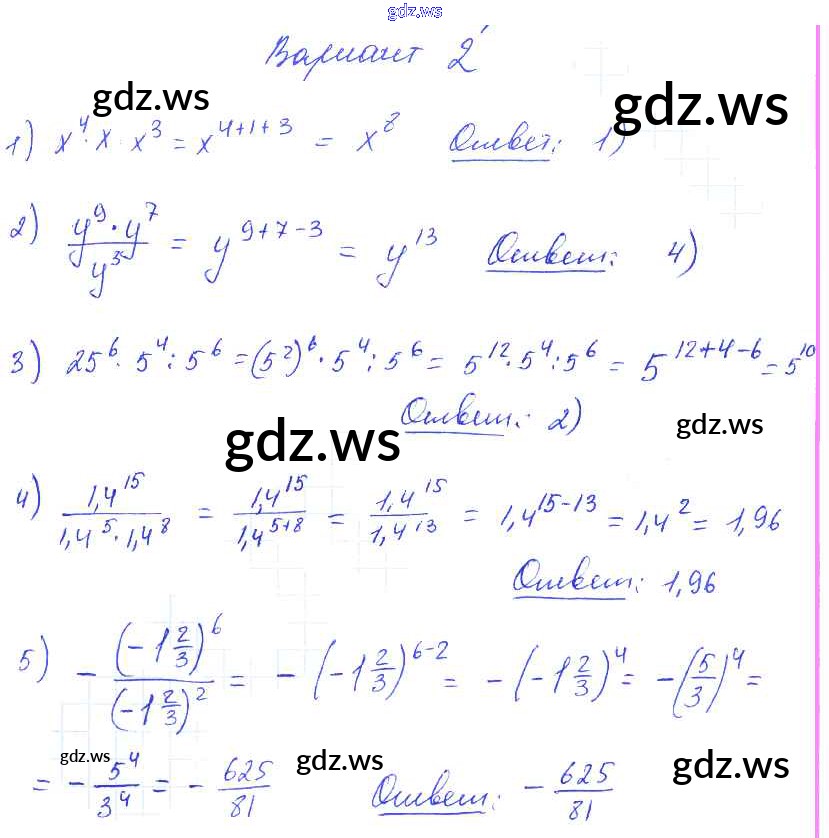 gdz.ws
Вариант 2
gdz.ws gdz.ws
1) x⁴·x·x³ = x⁴⁺¹⁺³ = x⁸ Ответ: 1)
2) (y⁹·y⁷)/y³ = y⁹⁺⁷⁻³ = y¹³ Ответ: 4)
3) 25⁶·5⁴:5⁶ = (5²)⁶·5⁴:5⁶ = 5¹²·5⁴:5⁶ = 5¹²⁺⁴⁻⁶ = 5¹⁰
Ответ: 2)
gdz.ws gdz.ws
4) 1,4¹⁵/(1,4⁵·1,4⁸) = 1,4¹⁵/1,4⁵⁺⁸ = 1,4¹⁵/1,4¹³ = 1,4¹⁵⁻¹³ = 1,4² = 1,96
Ответ: 1,96
5) -(-1 2/3)⁶/(-1 2/3)² = -(-1 2/3)⁶⁻² = -(-1 2/3)⁴ = -(5/3)⁴ =
gdz.ws gdz.ws gdz.ws
= -5⁴/3⁴ = -625/81 Ответ: -625/81